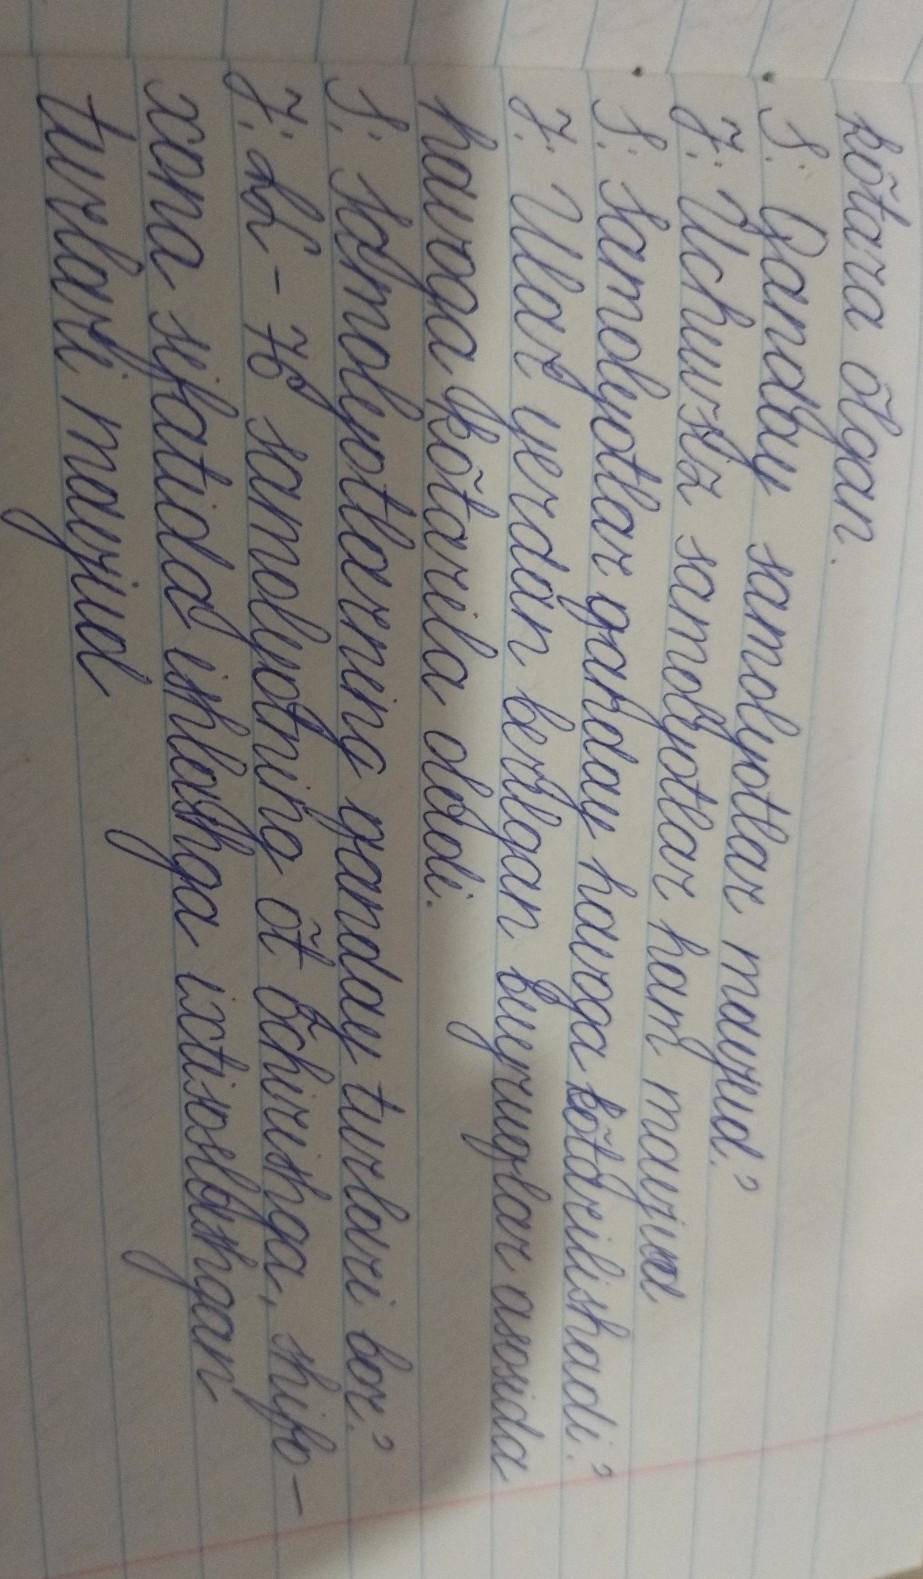 kõtara õlgan.
S: Qanday samolyotlar mavjud?
J: Uchuvsiz samolyotlar ham mavjud
S: Samolyotlar qanday havoga kõtarilishadi?
J: Ular yerdan berilgan buyruqlar asosida
havoga kõtarila oladi.
S: Samolyotlarning qanday turlari bor?
J: IL-76 samolyotning õt õchirishga, shifo-
xona sifatida ishlashga ixtisoslashgan
turlari mavjud